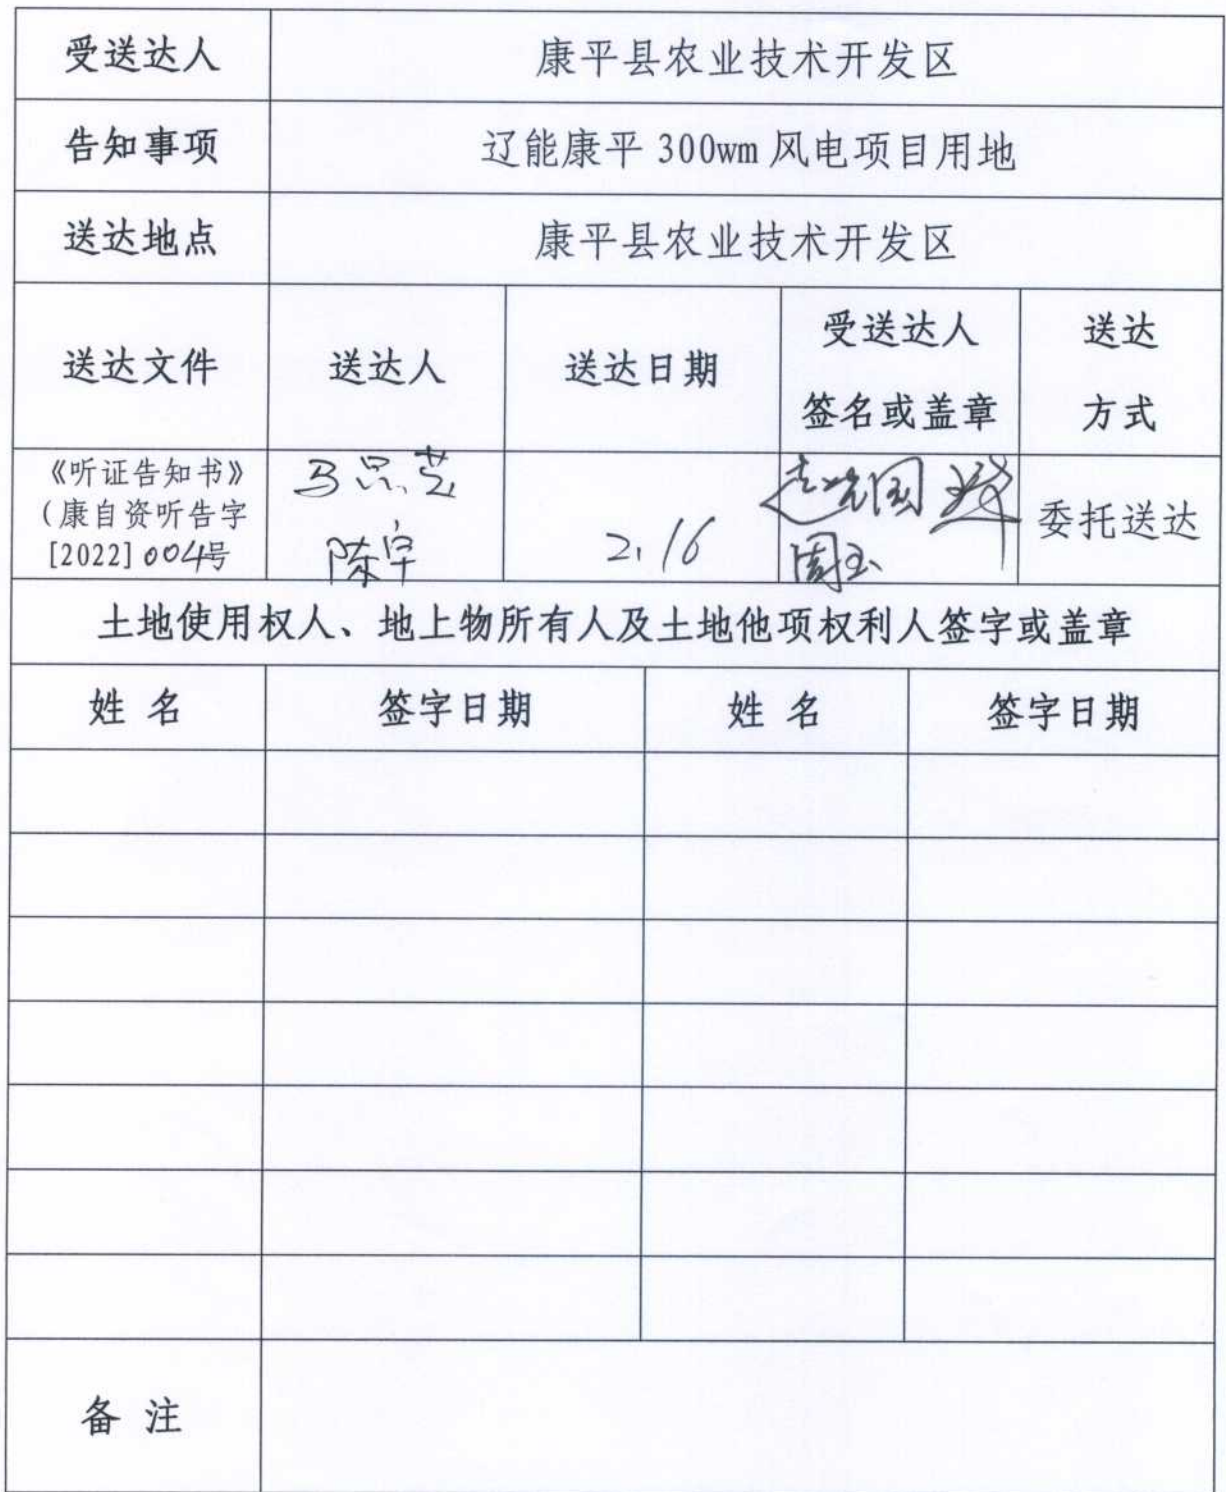 受送达人 康平县农业技术开发区
告知事项 辽能康平 300wm 风电项目用地
送达地点 康平县农业技术开发区
送达文件 送达人 送达日期 受送达人 签名或盖章 送达 方式
《听证告知书》
(康自资听告字
[2022]004号
陈宇
2.16
周玉
委托送达
土地使用权人、地上物所有人及土地他项权利人签字或盖章
姓 名 签字日期 姓 名 签字日期
备 注